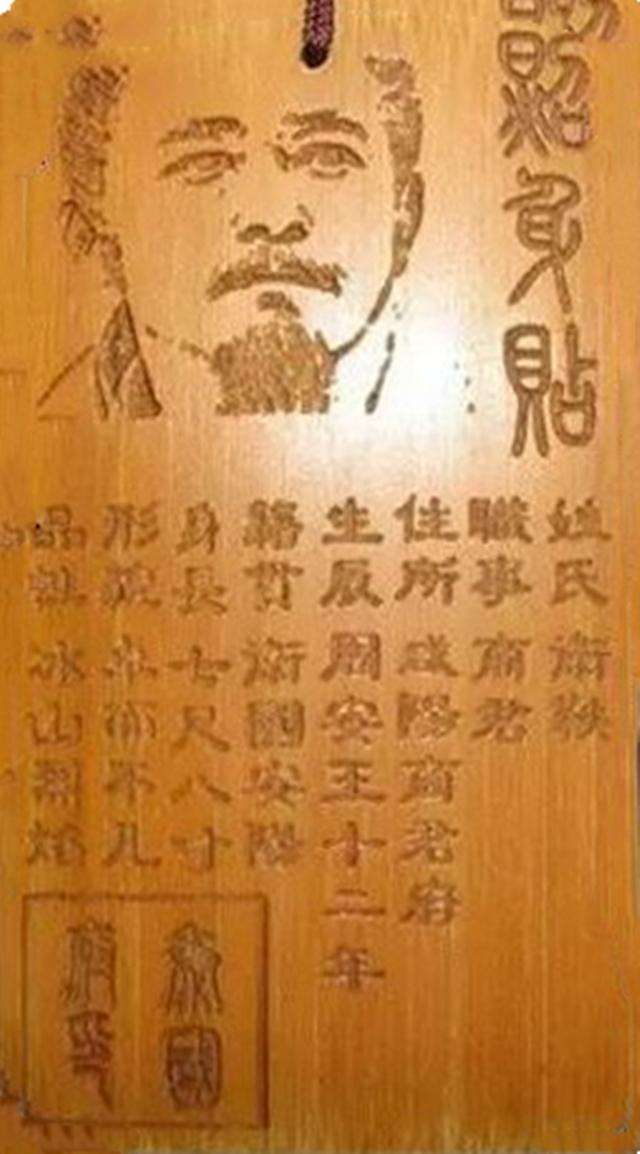 照身貼
姓氏 衛鞅
職事 商君
住所 咸陽商君府
生辰 周安王十二年
籍貫 衛國安陽
身長 七尺八寸
形貌 不凡
品性 冰山烈焰
秦國